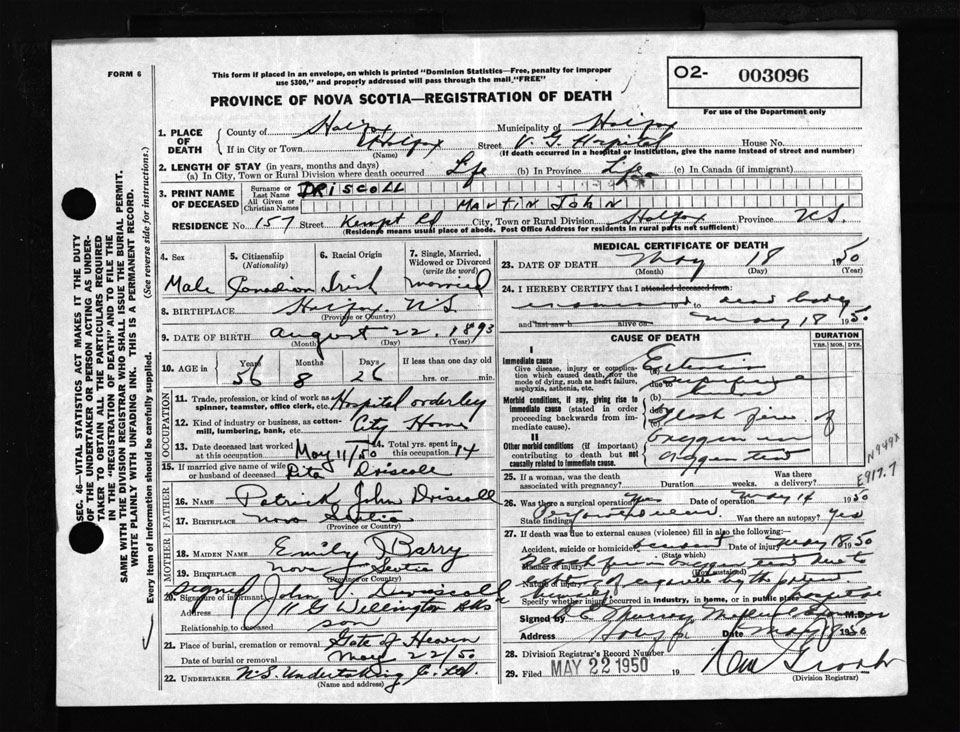 FORM 6
This form if placed in an envelope, on which is printed "Dominion Statistics—Free, penalty for improper
use $300," and properly addressed will pass through the mail "FREE"
PROVINCE OF NOVA SCOTIA—REGISTRATION OF DEATH
O2- 003096
For use of the Department only
SEC. 46—VITAL STATISTICS ACT MAKES IT THE DUTY
OF THE UNDERTAKER OR PERSON ACTING AS UNDER-
TAKER TO OBTAIN ALL THE PARTICULARS REQUIRED
IN THE "REGISTRATION OF DEATH" AND TO FILE THE
SAME WITH THE DIVISION REGISTRAR WHO SHALL ISSUE THE BURIAL PERMIT.
WRITE PLAINLY WITH UNFADING INK. THIS IS A PERMANENT RECORD.
Every item of information should be carefully supplied. (See reverse side for instructions.)
1. PLACE OF DEATH County of Halifax Municipality of Halifax
If in City or Town Halifax Street V. G. Hospital House No.
(Name) (If death occurred in a hospital or institution, give the name instead of street and number)
2. LENGTH OF STAY (in years, months and days)
(a) In City, Town or Rural Division where death occurred Life (b) In Province Life (c) In Canada (if immigrant)
3. PRINT NAME OF DECEASED Surname or Last Name DRISCOLL
All Given or Christian Names MARTIN JOHN
RESIDENCE No. 157 Street Kempt Rd City, Town or Rural Division Halifax Province N.S.
(Residence means usual place of abode. Post Office Address for residents in rural parts not sufficient)
4. Sex 5. Citizenship (Nationality) 6. Racial Origin 7. Single, Married, Widowed or Divorced (write the word)
Male Canadian Irish married
8. BIRTHPLACE Halifax N.S.
(Province or Country)
9. DATE OF BIRTH August 22, 1893
(Month) (Day) (Year)
10. AGE in Years Months Days If less than one day old
56 8 26 hrs. or min.
OCCUPATION
11. Trade, profession, or kind of work as spinner, teamster, office clerk, etc. Hospital orderley
12. Kind of industry or business, as cotton-mill, lumbering, bank, etc. City Home
13. Date deceased last worked at this occupation May 11/50 14. Total yrs. spent in this occupation 14
15. If married give name of wife or husband of deceased Rita Driscoll
FATHER
16. NAME Patrick John Driscoll
17. BIRTHPLACE Nova Scotia
(Province or Country)
MOTHER
18. MAIDEN NAME Emily J Barry
19. BIRTHPLACE Nova Scotia
(Province or Country)
20. Signature of informant signed John V. Driscoll
Address 116 Wellington
Relationship to deceased son
21. Place of burial, cremation or removal Gate of Heaven
Date of burial or removal May 22/50
22. UNDERTAKER N.S. Undertaking Co. Ltd.
(Name and address)
MEDICAL CERTIFICATE OF DEATH
23. DATE OF DEATH May 18 1950
(Month) (Day) (Year)
24. I HEREBY CERTIFY that I attended deceased from
19 to dead body
and last saw h alive on May 18 1950
CAUSE OF DEATH DURATION
YRS. MOS. DYS.
I
Immediate cause
Give disease, injury or complication which caused death, not the mode of dying, such as heart failure, asphyxia, asthenia, etc.
(a) Extensive
due to superficial
Morbid conditions, if any, giving rise to immediate cause (stated in order proceeding backwards from immediate cause).
(b) burns
due to
flash fire of
II
Other morbid conditions (if important) contributing to death but not causally related to immediate cause.
oxygen in
oxygen tent
N949X
E917.7
25. If a woman, was the death associated with pregnancy? Duration weeks. Was there a delivery?
26. Was there a surgical operation? Yes Date of operation May 14 1950
State findings Was there an autopsy? Yes
27. If death was due to external causes (violence) fill in also the following:—
Accident, suicide or homicide? accident Date of injury May 18 1950
(State which)
Manner of injury Flash fire in oxygen tent due to
(How sustained)
lighting of cigarette by the patient
himself
Specify whether injury occurred in industry, in home, or in public place hospital
Signed by M.D.
Address Halifax Date May 18 1950
28. Division Registrar's Record Number
29. Filed MAY 22 1950 19
(Division Registrar)